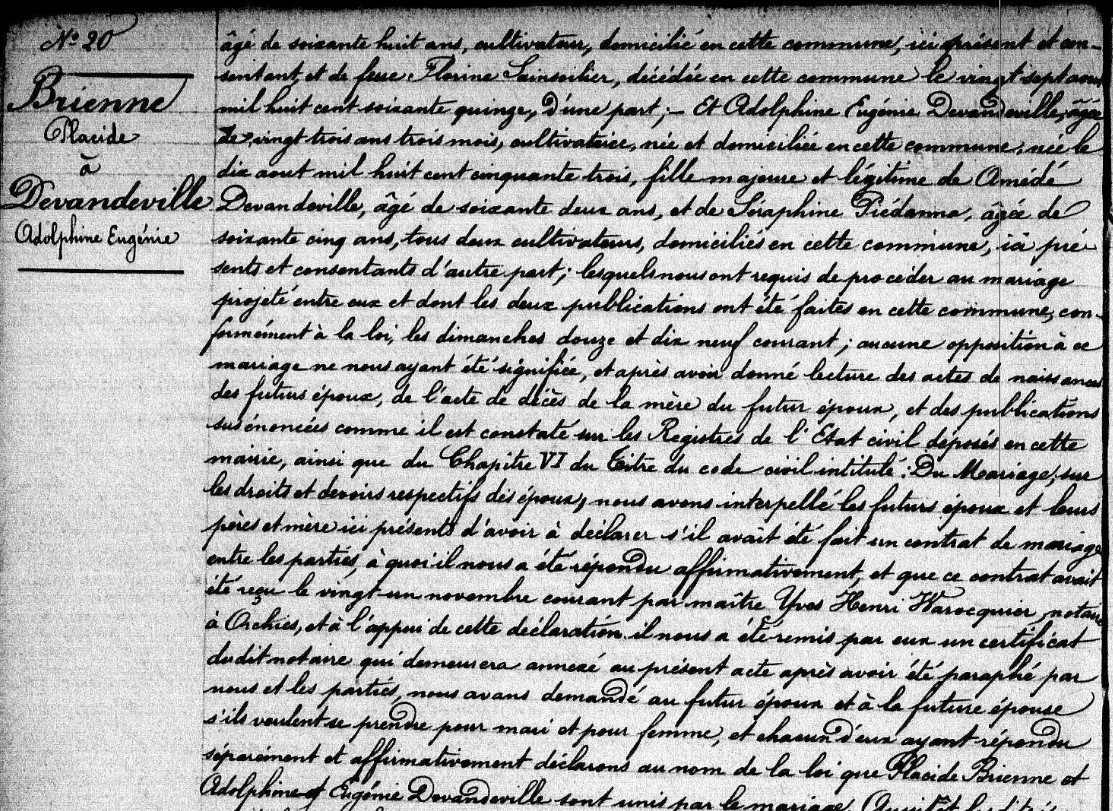 N° 20
Brienne
Placide
à
Devandeville
Adolphine Eugénie
âgé de soixante huit ans, cultivateur, domicilié en cette commune, ici présent et con-
sentant, et de feue Florine Sainsolier, décédée en cette commune le vingt sept
mil huit cent soixante quinze, d'une part; – Et Adolphine Eugénie Devandeville, âgée
de vingt trois ans trois mois, cultivatrice, née et domiciliée en cette commune, née le
dix aout mil huit cent cinquante trois, fille majeure et légitime de Amédé
Devandeville, âgé de soixante deux ans, et de Séraphine Piédanna, âgée de
soixante cinq ans, tous deux cultivateurs, domiciliés en cette commune, ici pré-
sents et consentants d'autre part; lesquels nous ont requis de procéder au mariage
projeté entre eux et dont les deux publications ont été faites en cette commune, con-
formément à la loi, les dimanches douze et dix neuf courant; aucune opposition à ce
mariage ne nous ayant été signifiée, et après avoir donné lecture des actes de naissances
des futurs époux, de l'acte de décès de la mère du futur époux, et des publications
susénoncées comme il est constaté sur les Registres de l'Etat civil déposés en cette
mairie, ainsi que du Chapitre VI du Titre du code civil intitulé: Du Mariage, sur
les droits et devoirs respectifs des époux, nous avons interpellé les futurs époux et leurs
pères et mère ici présents d'avoir à déclarer s'il avait été fait un contrat de mariage
entre les parties, à quoi il nous a été répondu affirmativement, et que ce contrat avait
été reçu le vingt-un novembre courant par maître Yves Henri Warocquier, notaire
à Orchies, et à l'appui de cette déclaration il nous a été remis par eux un certificat
dudit notaire qui demeurera annexé au présent acte après avoir été paraphé par
nous et les parties, nous avons demandé au futur époux et à la future épouse
s'ils veulent se prendre pour mari et pour femme, et chacun d'eux ayant répondu
séparément et affirmativement déclarons au nom de la loi que Placide Brienne et
Adolphine Eugénie Devandeville sont unis par le mariage.